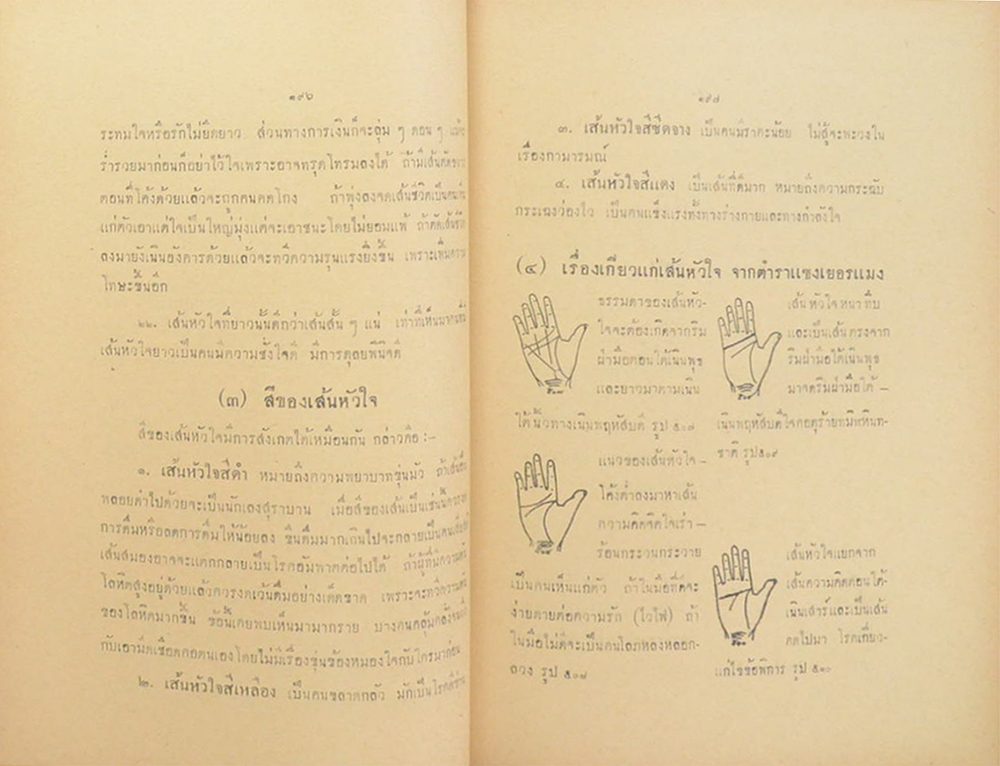 ๑๙๖
ระทมใจหรือรักไม่ยืดยาว ส่วนทางการเงินก็จะล่ม ๆ ดอน ๆ
ร่ำรวยมาก่อนก็อย่าไว้ใจเพราะอาจทรุดโทรมลงได้ ถ้ามีเส้นตัด
ตอนที่โค้งด้วยแล้วจะถูกคนคดโกง ถ้าพุ่งลงจดเส้นชีวิตเป็นคน
แก่ตัวเอาแต่ใจเป็นใหญ่มุ่งแต่จะเอาชนะโดยไม่ยอมแพ้ ถ้าตัดเส้นชีวิต
ลงมายังเนินอังคารด้วยแล้วจะทวีความรุนแรงยิ่งขึ้น เพราะเพิ่มความ
โทษะขึ้นอีก
๒๒. เส้นหัวใจที่ยาวนั้นดีกว่าเส้นสั้น ๆ แน่ เท่าที่เห็นมา
เส้นหัวใจยาวเป็นคนมีความชั่งใจดี มีการดุลยพินิจดี
(๓) สีของเส้นหัวใจ
สีของเส้นหัวใจมีการสังเกตได้เหมือนกัน กล่าวคือ :-
๑. เส้นหัวใจสีดำ หมายถึงความพยาบาทขุ่นมัว ถ้าเส้น
พลอยดำไปด้วยจะเป็นนักเลงสุราบาน เมื่อสีของเส้นเป็นเช่นนี้ควร
การดื่มหรือลดการดื่มให้น้อยลง ขืนดื่มมากเกินไปจะกลายเป็นคน
เส้นสมองอาจจะแตกกลายเป็นโรคอัมพาตต่อไปได้ ถ้าผู้ที่มีความดัน
โลหิตสูงอยู่ด้วยแล้วควรงดเว้นดื่มอย่างเด็ดขาด เพราะจะทวีความดัน
ของโลหิตมากขึ้น ข้อนี้เคยพบเห็นมามากราย บางคนคลุ้มคลั่ง
กับเอามีดเชือดคอตนเองโดยไม่มีเรื่องขุ่นข้องหมองใจกับใครมาก่อน
๒. เส้นหัวใจสีเหลือง เป็นคนขลาดกลัว มักเป็นโรค
๑๙๗
๓. เส้นหัวใจสีซีดจาง เป็นคนมีราคะน้อย ไม่สู้จะพะวงใน
เรื่องกามารมณ์
๔. เส้นหัวใจสีแดง เป็นเส้นที่ดีมาก หมายถึงความกระฉับ
กระเฉงว่องไว เป็นคนแข็งแรงทั้งทางร่างกายและทางกำลังใจ
(๔) เรื่องเกี่ยวแก่เส้นหัวใจ จากตำราแซงเยอรแมง
ธรรมดาของเส้นหัว-
ใจจะต้องเกิดจากริม
ฝ่ามือตอนใต้เนินพุธ
และยาวมาตามเนิน
ใต้นิ้วทางเนินพฤหัสบดี รูป ๕๐๗
แนวของเส้นหัวใจ -
โค้งต่ำลงมาหาเส้น
ความคิดจิตใจเร่า -
ร้อนกระวนกระวาย
เป็นคนเห็นแก่ตัว ถ้าในมือที่ดีจะ
ง่ายดายต่อความรัก (ไวไฟ) ถ้า
ในมือไม่ดีจะเป็นคนโลภหลงหลอก-
ลวง รูป ๕๐๘
เส้นหัวใจหนาทึบ
และเป็นเส้นตรงจาก
ริมฝ่ามือใต้เนินพุธ
มาจดริมฝ่ามือใต้ -
เนินพฤหัสบดีใจคอดุร้ายทมิฬหินท-
ชาติ รูป ๕๐๙
เส้นหัวใจแยกจาก
เส้นความคิดตอนใต้-
เนินเสาร์และเป็นเส้น
คดไปมา โรคเกี่ยว-
แก่ไขข้อพิการ รูป ๕๑๐